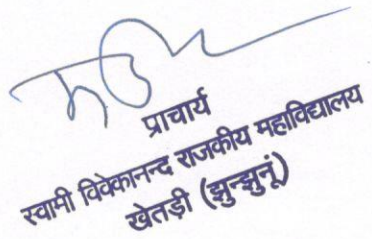 प्राचार्य
स्वामी विवेकानन्द राजकीय महाविद्यालय
खेतड़ी (झुन्झुनूं)